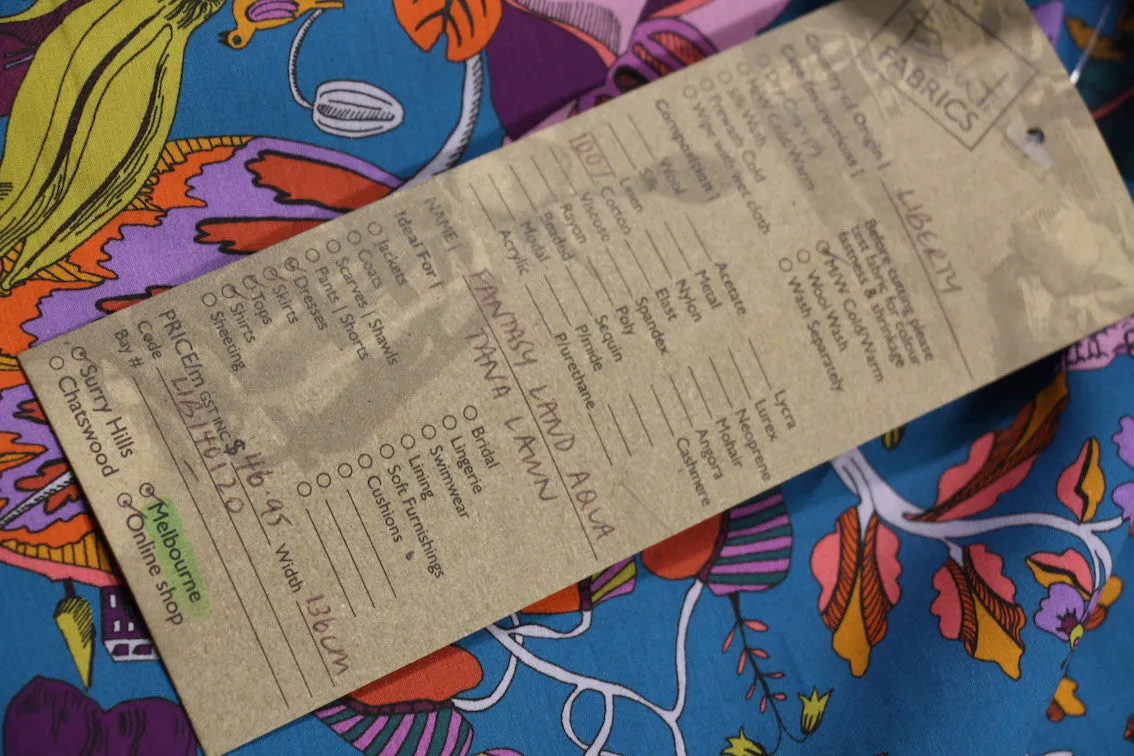 FABRICS
Country of Origin | LIBERTY
Care Instructions |
Before cutting please
test fabric for colour
fastness & shrinkage
Prewash Cold
Wipe with wet cloth
H/W Cold/Warm
Wool Wash
Wash Separately
Composition |
Wool
Silk
Linen
100% Cotton
Viscose
Rayon
Beaded
Modal
Acrylic
Acetate
Metal
Nylon
Elast
Spandex
Poly
Sequin
P/mide
P/urethane
Lycra
Lurex
Neoprene
Mohair
Angora
Cashmere
NAME | FANTASY LAND AQUA
TANA LAWN
Ideal For |
Jackets
Coats
Scarves | Shawls
Pants | Shorts
Dresses
Skirts
Tops
Shirts
Sheeting
Bridal
Lingerie
Swimwear
Lining
Soft Furnishings
Cushions
PRICE/m GST INC $ 46.95 Width 136cm
Code LIB140120
Bay #
Surry Hills
Chatswood
Melbourne
Online shop